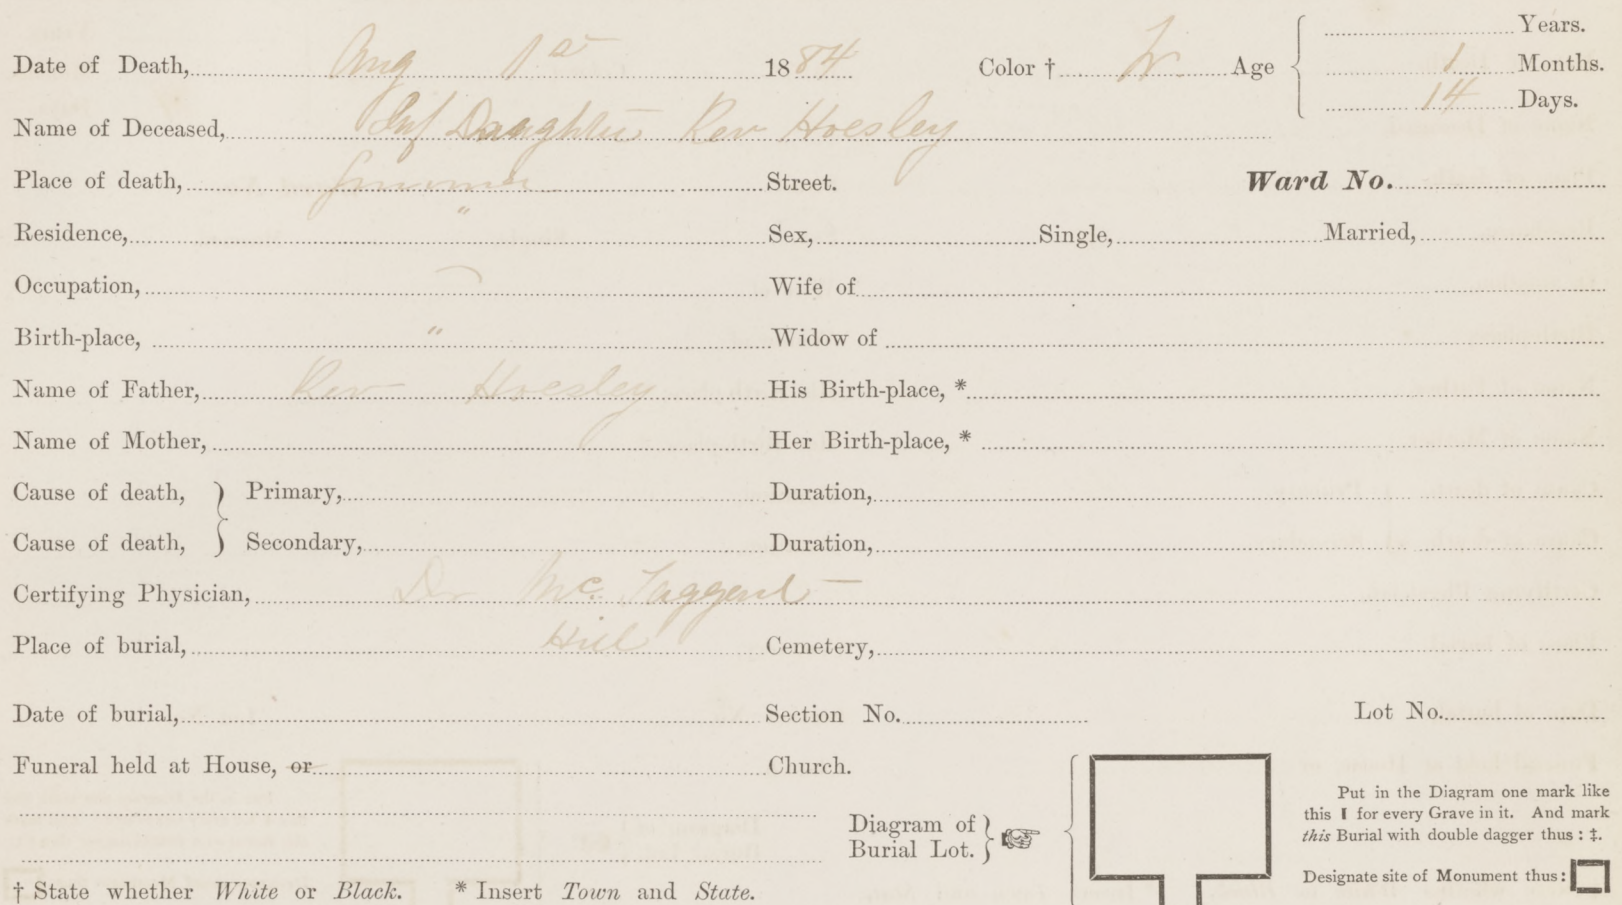 Date of Death, Aug 1st 1884 Color † W. Age { Years.
1 Months.
14 Days.
Name of Deceased, Inf Daughter Rev Hoesley
Place of death, Street. Ward No.
Residence, " Sex, Single, Married,
Occupation, Wife of
Birth-place, " Widow of
Name of Father, Rev Hoesley His Birth-place, *
Name of Mother, Her Birth-place, *
Cause of death, } Primary, Duration,
Cause of death, } Secondary, Duration,
Certifying Physician, Dr Mc. Taggart
Place of burial, Hill Cemetery,
Date of burial, Section No. Lot No.
Funeral held at House, or Church.
Diagram of }
Burial Lot. }
Put in the Diagram one mark like
this ▌ for every Grave in it. And mark
this Burial with double dagger thus : ‡.
Designate site of Monument thus :
† State whether White or Black. * Insert Town and State.